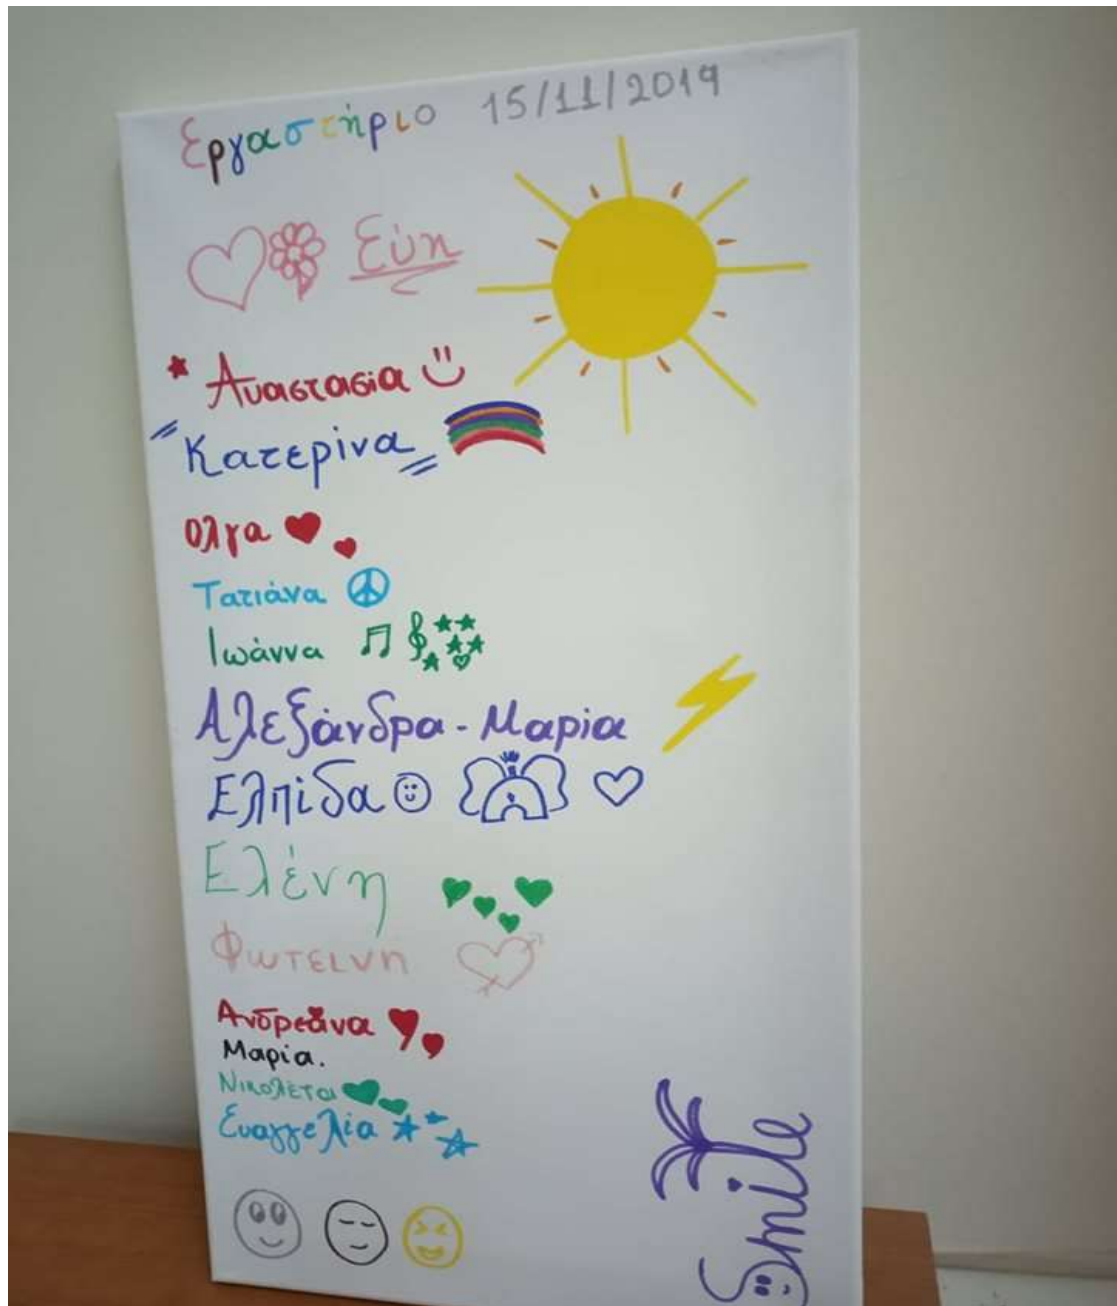 Εργαστήριο 15/11/2019
Εύη
Αναστασία
Κατερίνα
Ολγα
Τατιάνα
Ιωάννα
Αλεξάνδρα - Μαρία
Ελπίδα
Ελένη
Φωτεινη
Ανδρεάνα
Μαρία.
Νικολέτα
Ευαγγελία
Smile